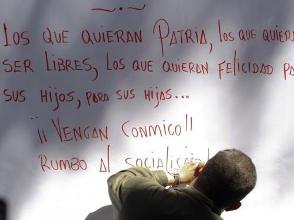 LOS QUE QUIERAN PATRIA, LOS QUE QUIERAN
SER LIBRES, LOS QUE QUIERAN FELICIDAD PA
SUS HIJOS, PARA SUS HIJAS...
¡¡ VENGAN CONMIGO!!
RUMBO AL SOCIALISMO